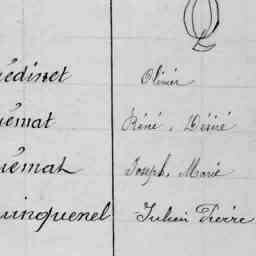 Q
édinet Olivier
uémat Réné, Désiré
uémat Joseph, Marie
uinquenel Julien Pierre